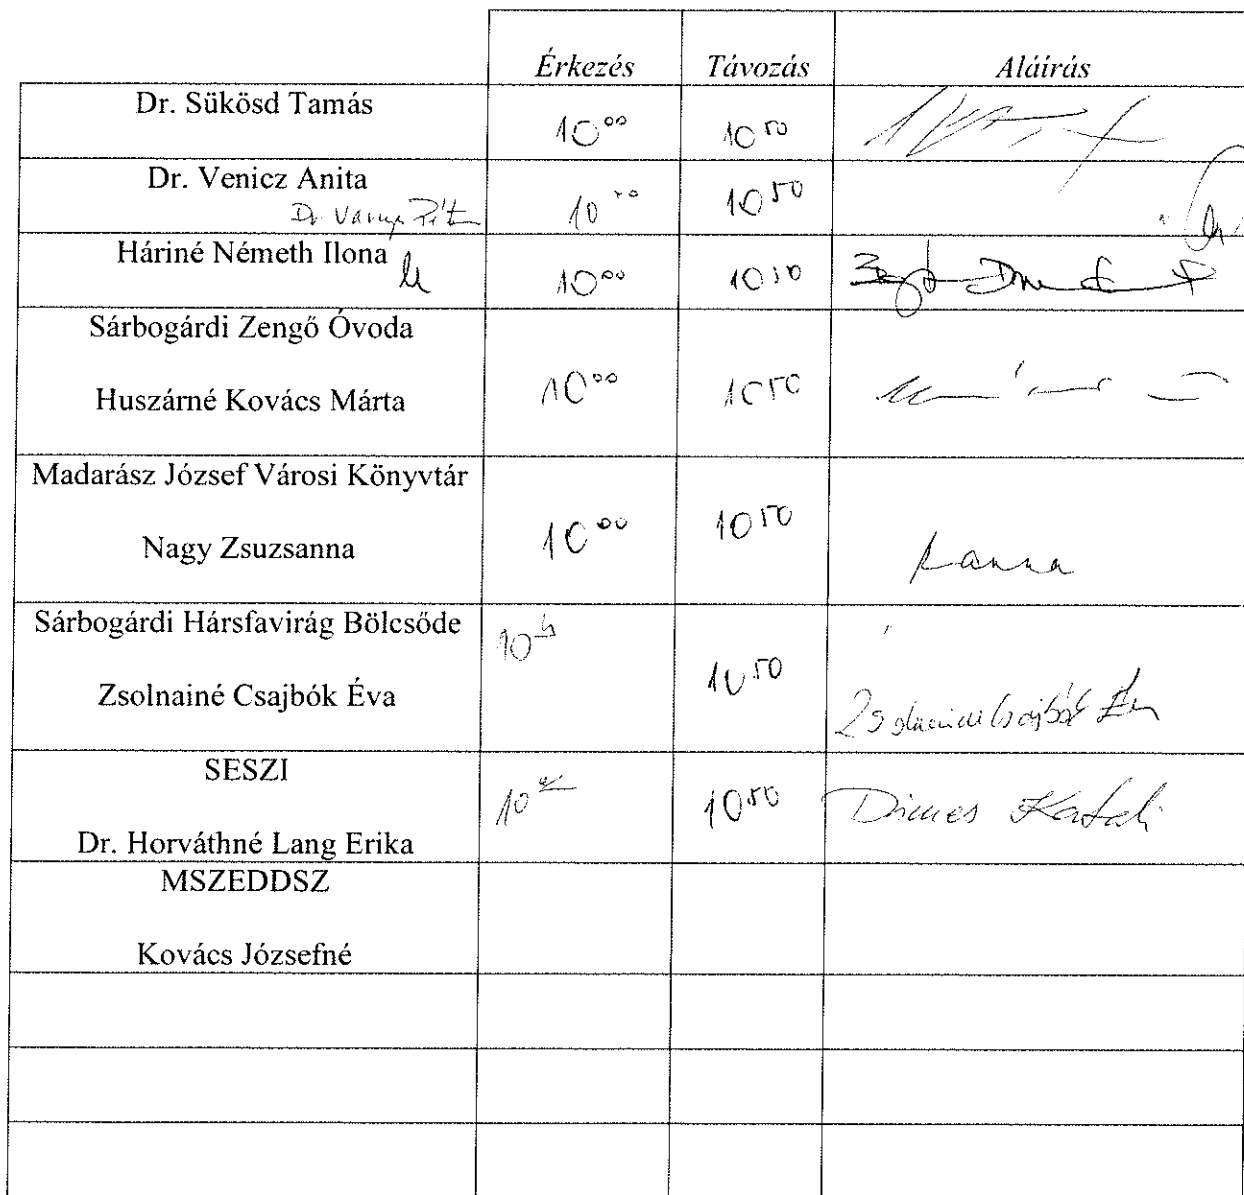 Érkezés Távozás Aláírás
Dr. Sükösd Tamás 10⁰⁰ 10⁵⁰
Dr. Venicz Anita 10⁵⁰
Dr. 10
Háriné Németh Ilona 10⁰⁰ 10⁵⁰
Sárbogárdi Zengő Óvoda
Huszárné Kovács Márta 10⁰⁰ 10⁵⁰
Madarász József Városi Könyvtár
Nagy Zsuzsanna 10⁰⁰ 10⁵⁰
Sárbogárdi Hársfavirág Bölcsőde 10
Zsolnainé Csajbók Éva 10⁵⁰ Zsolnainé Csajbók Éva
SESZI
10 10⁵⁰ Dimes
Dr. Horváthné Lang Erika
MSZEDDSZ
Kovács Józsefné